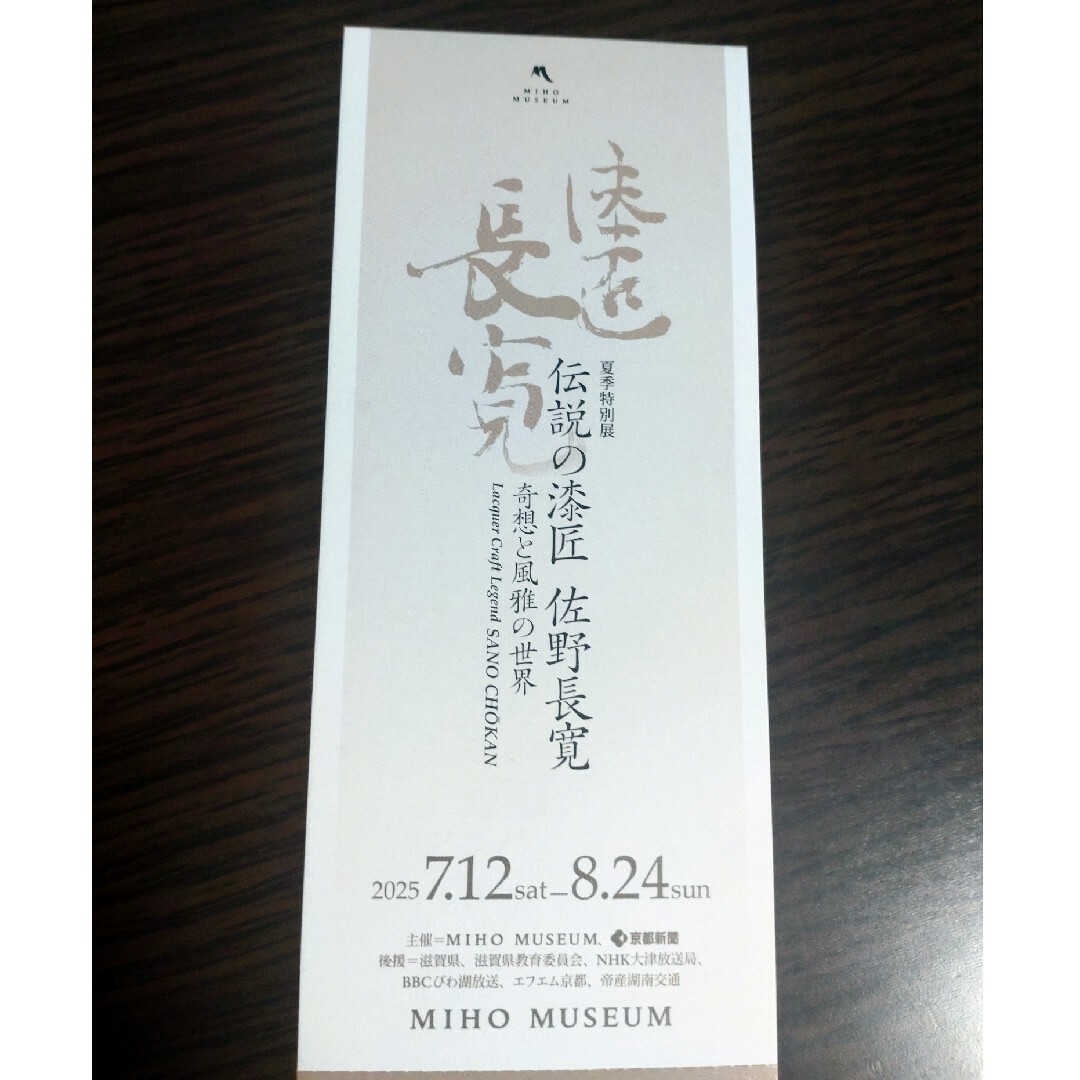 MIHO
MUSEUM
漆匠
長寛
夏季特別展
伝説の漆匠 佐野長寛
奇想と風雅の世界
Lacquer Craft Legend SANO CHŌKAN
2025 7.12 sat – 8.24 sun
主催=MIHO MUSEUM、京都新聞
後援=滋賀県、滋賀県教育委員会、NHK大津放送局、
BBCびわ湖放送、エフエム京都、帝産湖南交通
MIHO MUSEUM